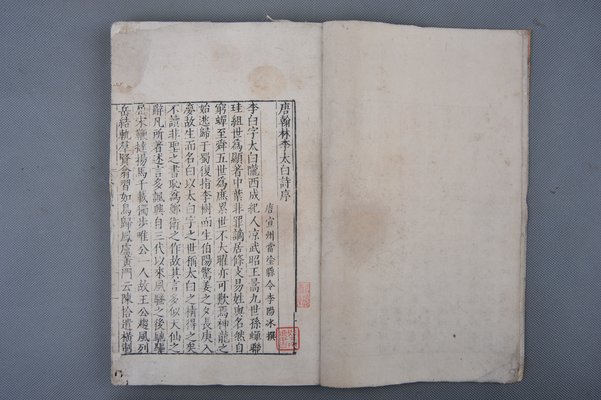 唐翰林李太白詩序
唐宣州當塗縣令李陽冰撰
李白字太白隴西成紀人涼武昭王暠九世孫蟬聯
珪組世為顯著中葉非罪謫居條支易姓與名然自
窮蟬至舜五世為庶累世不大曜亦可歎焉神龍之
始逃歸于蜀復指李樹而生伯陽驚姜之夕長庚入
夢故生而名白以太白字之世稱太白之精得之矣
不讀非聖之書恥為鄭衛之作故其言多似天仙之
辭凡所著述言多諷興自三代以來風騷之後馳驅
屈宋鞭撻揚馬千載獨步唯公一人故王公趨風列
岳結軌羣賢翕習如鳥歸鳳盧黃門云陳拾遺橫制